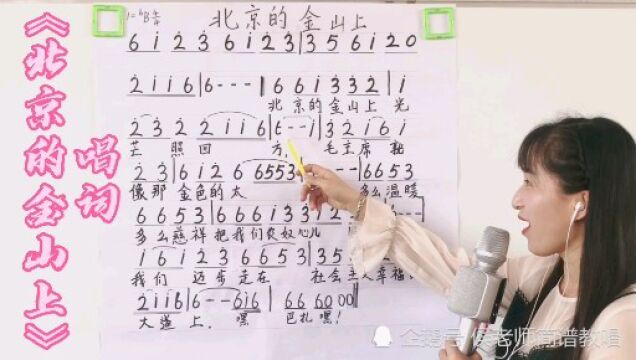 《北京的金山上》
唱词
北京的金山上
1=ᵇB 2/4
6 i 2 3 6 i 2 3 | 3 5 6 i 2 0
2 i i 6 | 6 - - - | 6 6 i 3 3 2 | i
北京的金山上 光
2 3 2 2 i i 6 | 6 - - i | 3 2 i 6 i
芒 照 四 方, 毛主席
2 3 | 6 i 2 6 6 5 5 3 - - - | 6 6 5 3
像那 金色的太 多么温暖
6 6 5 3 | 6 6 6 i 3 3 | i 2
多么慈祥 把我们农奴心儿
i 6 i 2 3 6 6 5 3 | 3 5
我们 迈步走在 社会主义幸福
2 i i 6 | 6 - - 6 i 6 | 6 6 6 0 0 0
大道上, 嘿 巴扎嘿!
企鹅号 侯老师简谱教唱